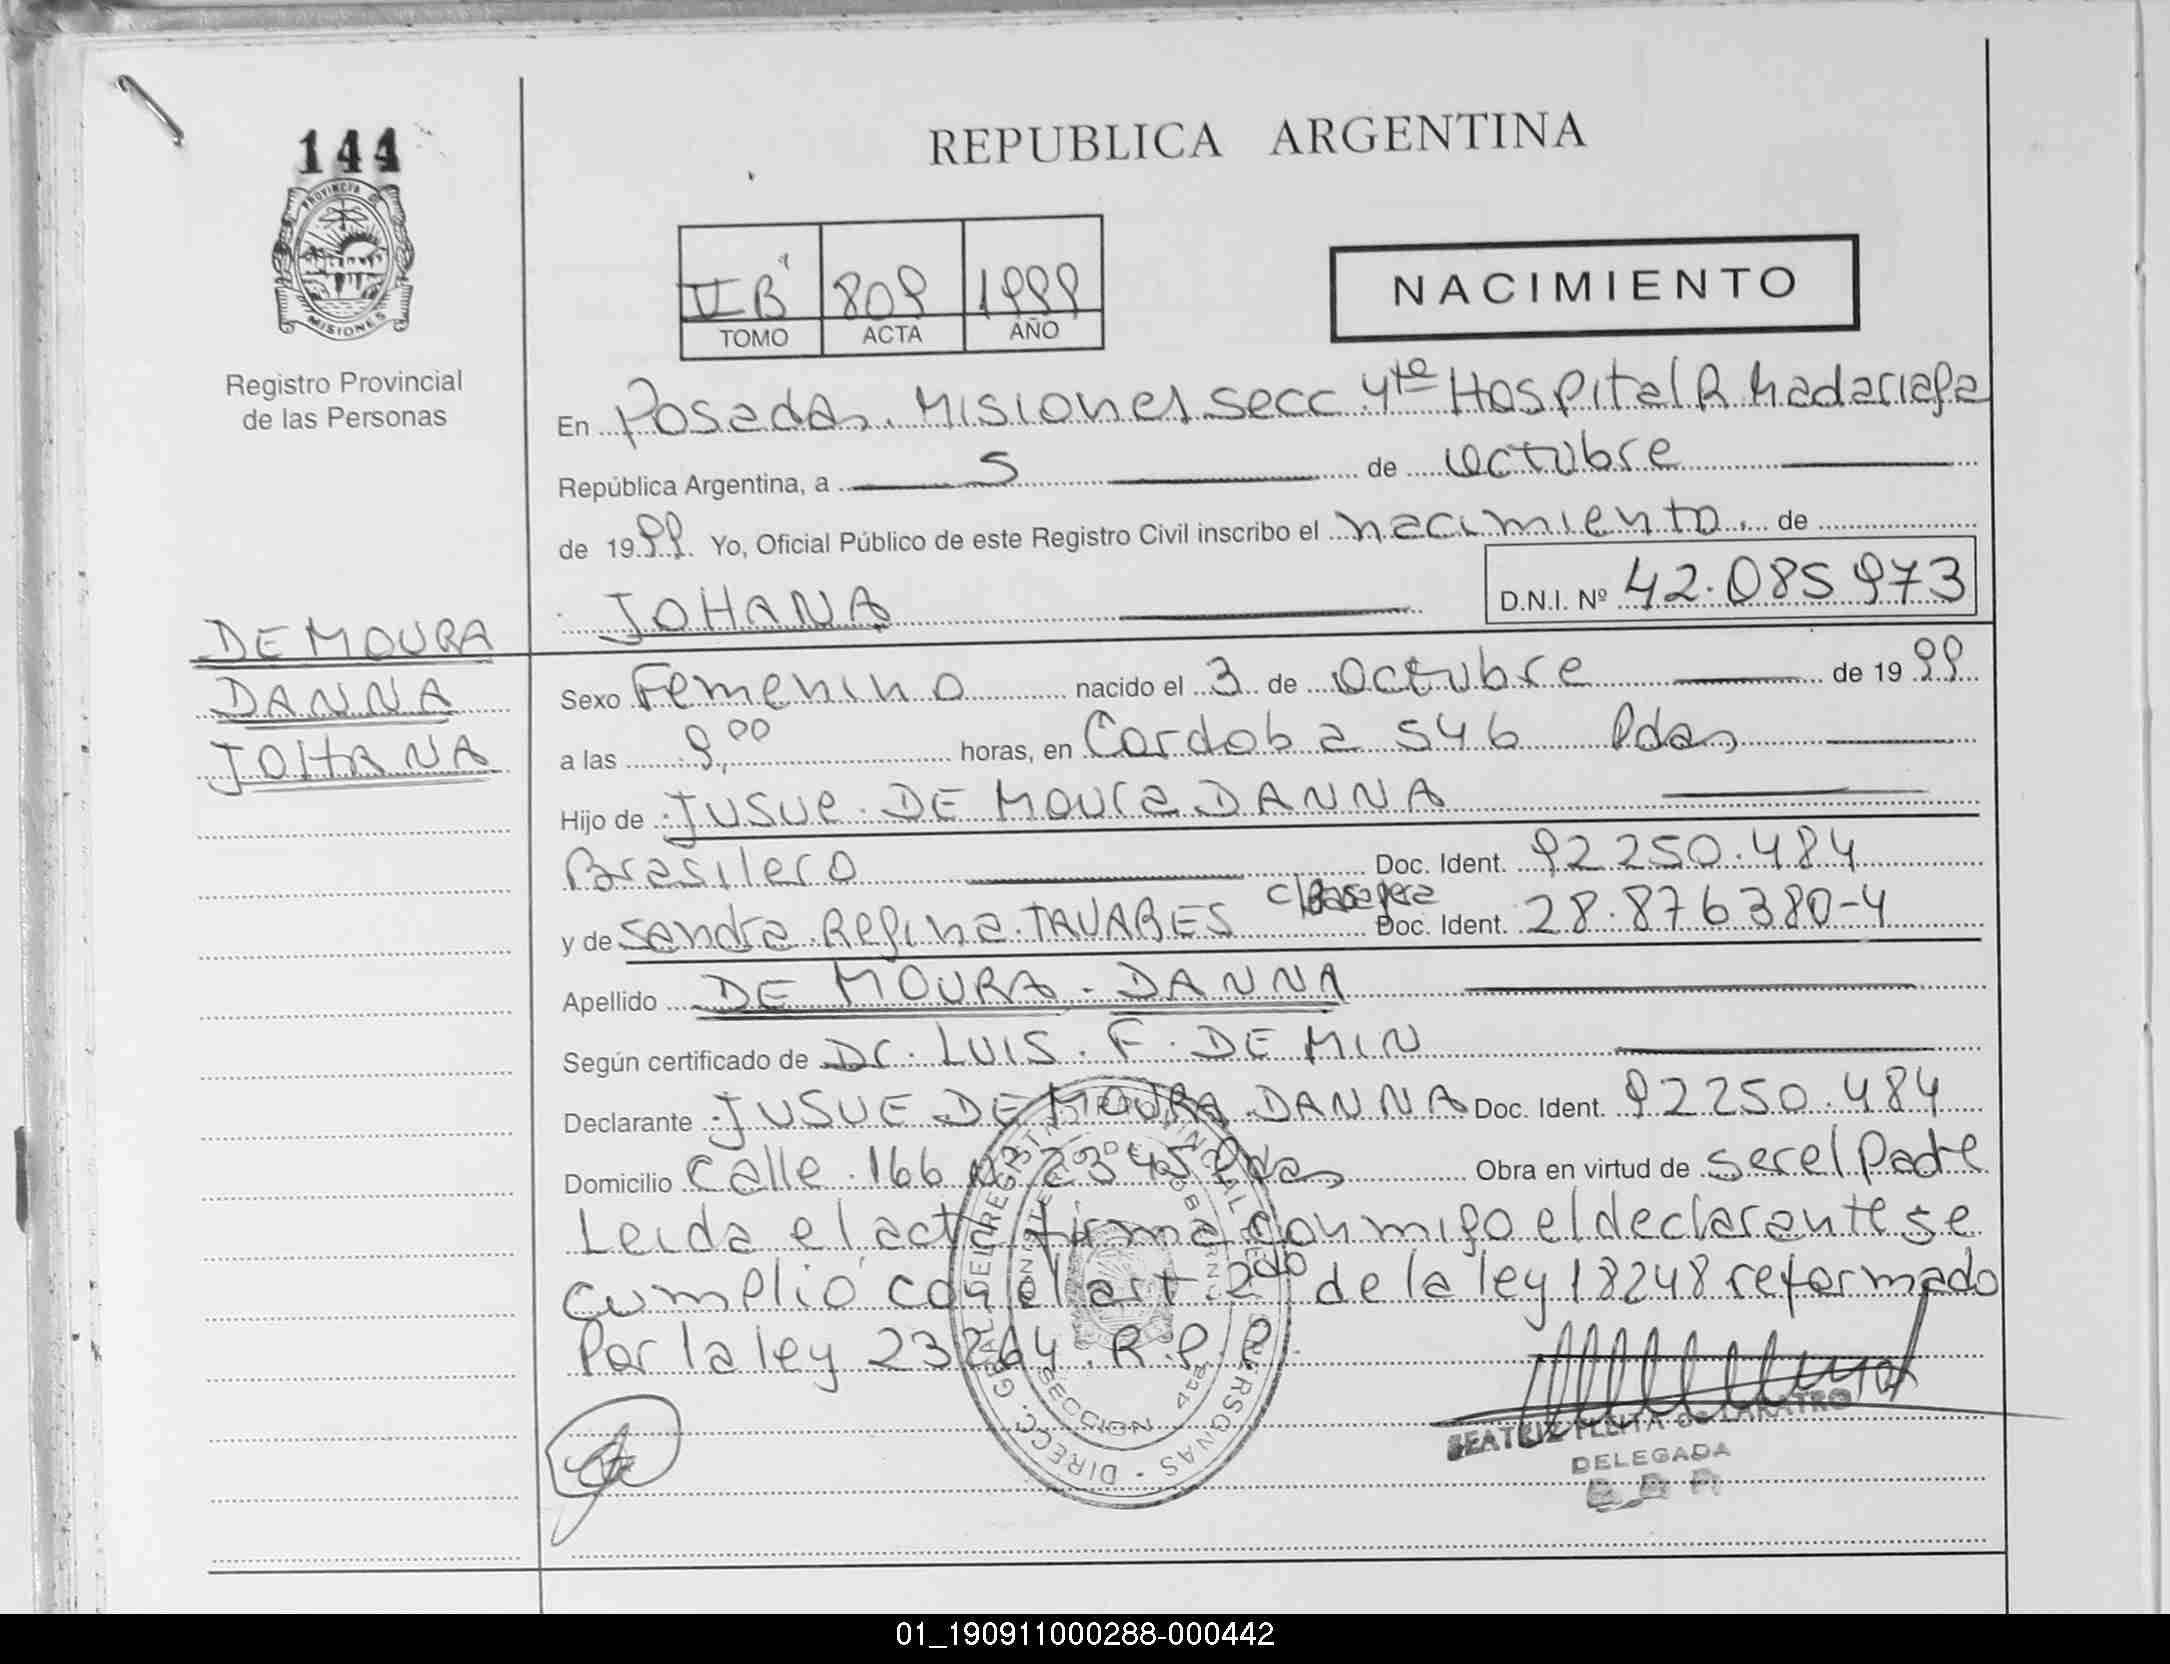 144
PROVINCIA DE
MISIONES
Registro Provincial
de las Personas
DE MOURA
DANNA
JOHANA
REPUBLICA ARGENTINA
II B 809 1999
TOMO ACTA AÑO
NACIMIENTO
En Posadas. Misiones secc 4ta Hospital R Madariaga
República Argentina, a 5 de octubre
de 1999 Yo, Oficial Público de este Registro Civil inscribo el nacimiento. de
JOHANA D.N.I. Nº 42.085 973
Sexo Femenino nacido el 3 de Octubre de 1999
a las 9,00 horas, en Cordoba 546 Pdas
Hijo de JUSUE. DE MOURA DANNA
Brasilero Doc. Ident. 92250.484
y de Sandra Regina TAVARES Doc. Ident. 28.876380-4
Apellido DE MOURA - DANNA
Según certificado de Dr. LUIS. F. DE MIN
Declarante JUSUE DE MOURA DANNA Doc. Ident. 92250.484
Domicilio Calle 166 Nº 2345 Pdas Obra en virtud de ser el Padre
Leida el acta firma conmigo el declarante se
cumplió con el art 2do de la ley 18248 reformado
Por la ley 23264. R.P.P.
DIRECC. GRAL. DEL REGISTRO PROVINCIAL DE LAS PERSONAS
MINISTERIO DE GOBIERNO
SECCION 4ta
BEATRIZ FLEITA de LARATRO
DELEGADA
01_190911000288-000442